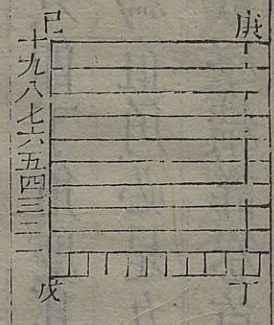 庚
己
十九八七六五四三二一
丁
戊